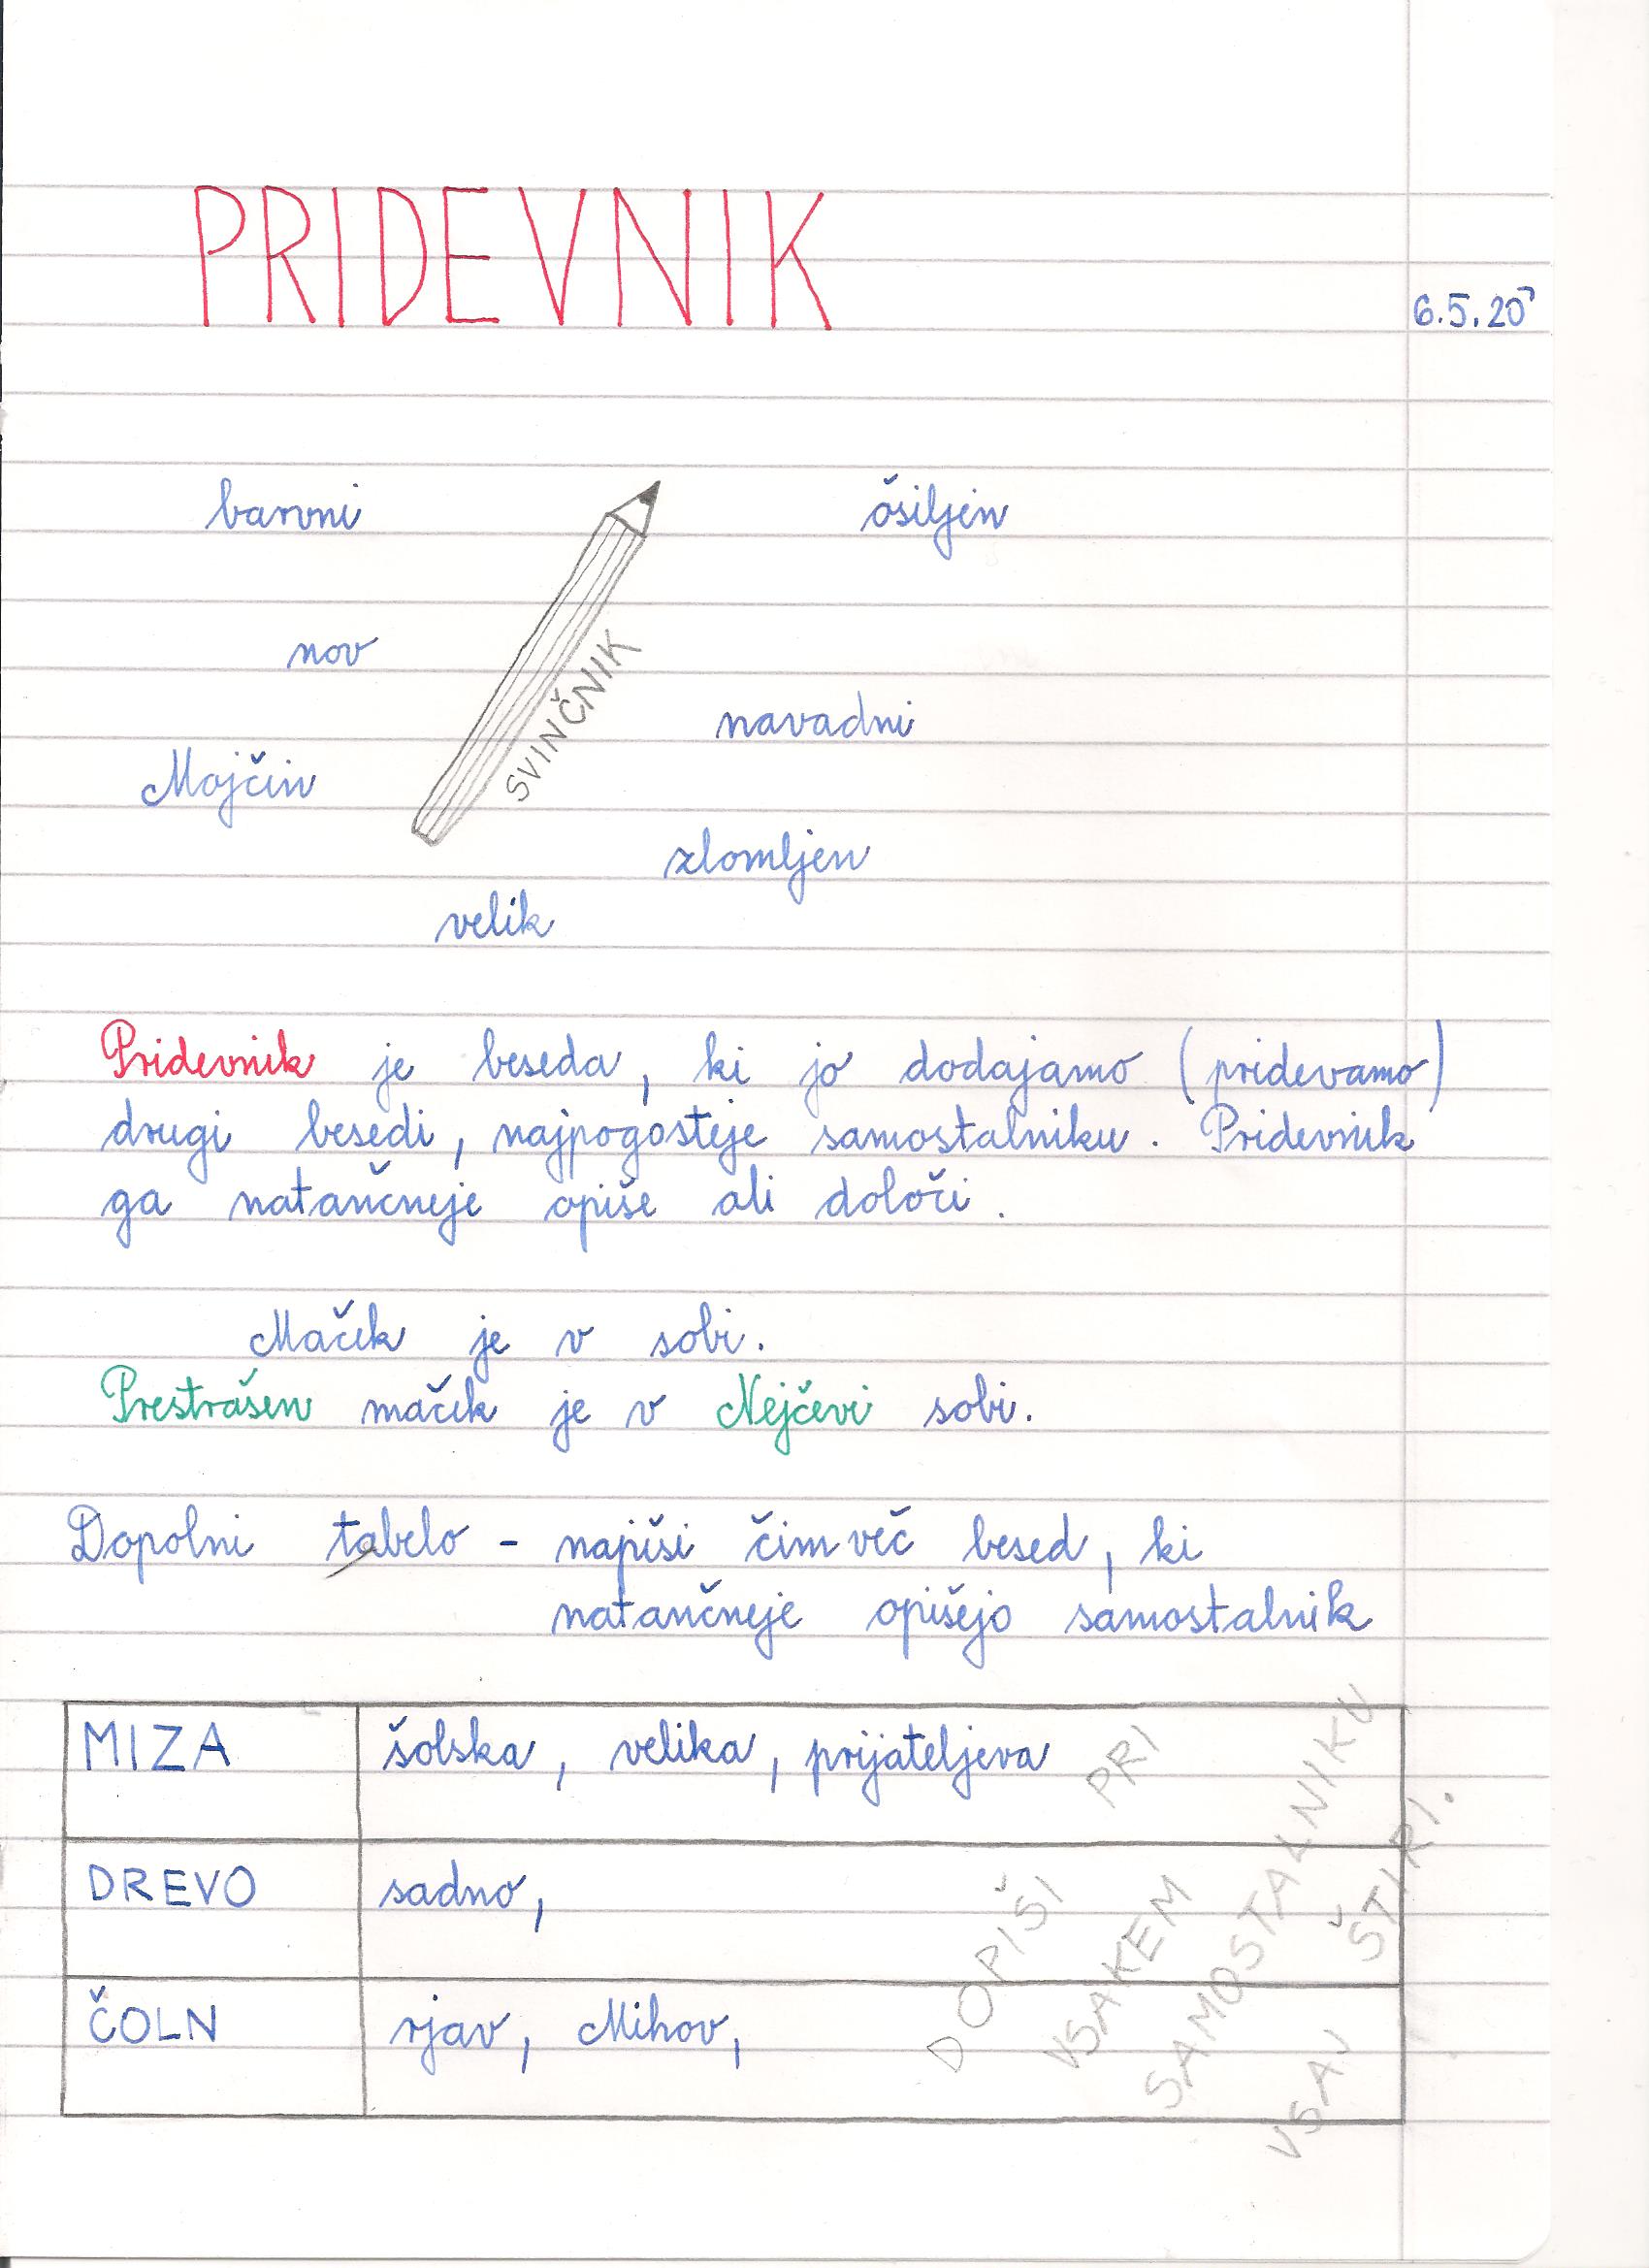 PRIDEVNIK
6.5.20
barvni
ošiljen
nov
SVINČNIK
navadni
Mojčin
zlomljen
velik
Pridevnik je beseda, ki jo dodajamo (pridevamo)
drugi besedi, najpogosteje samostalniku. Pridevnik
ga natančneje opiše ali določi.
Maček je v sobi.
Prestrašen maček je v Nejčevi sobi.
Dopolni tabelo - napiši čim več besed, ki
natančneje opišejo samostalnik
MIZA šolska, velika, prijateljeva
DREVO sadno,
ČOLN rjav, Mihov,
DOPIŠI PRI
VSAKEM
SAMOSTALNIKU
VSAJ ŠTIRI.